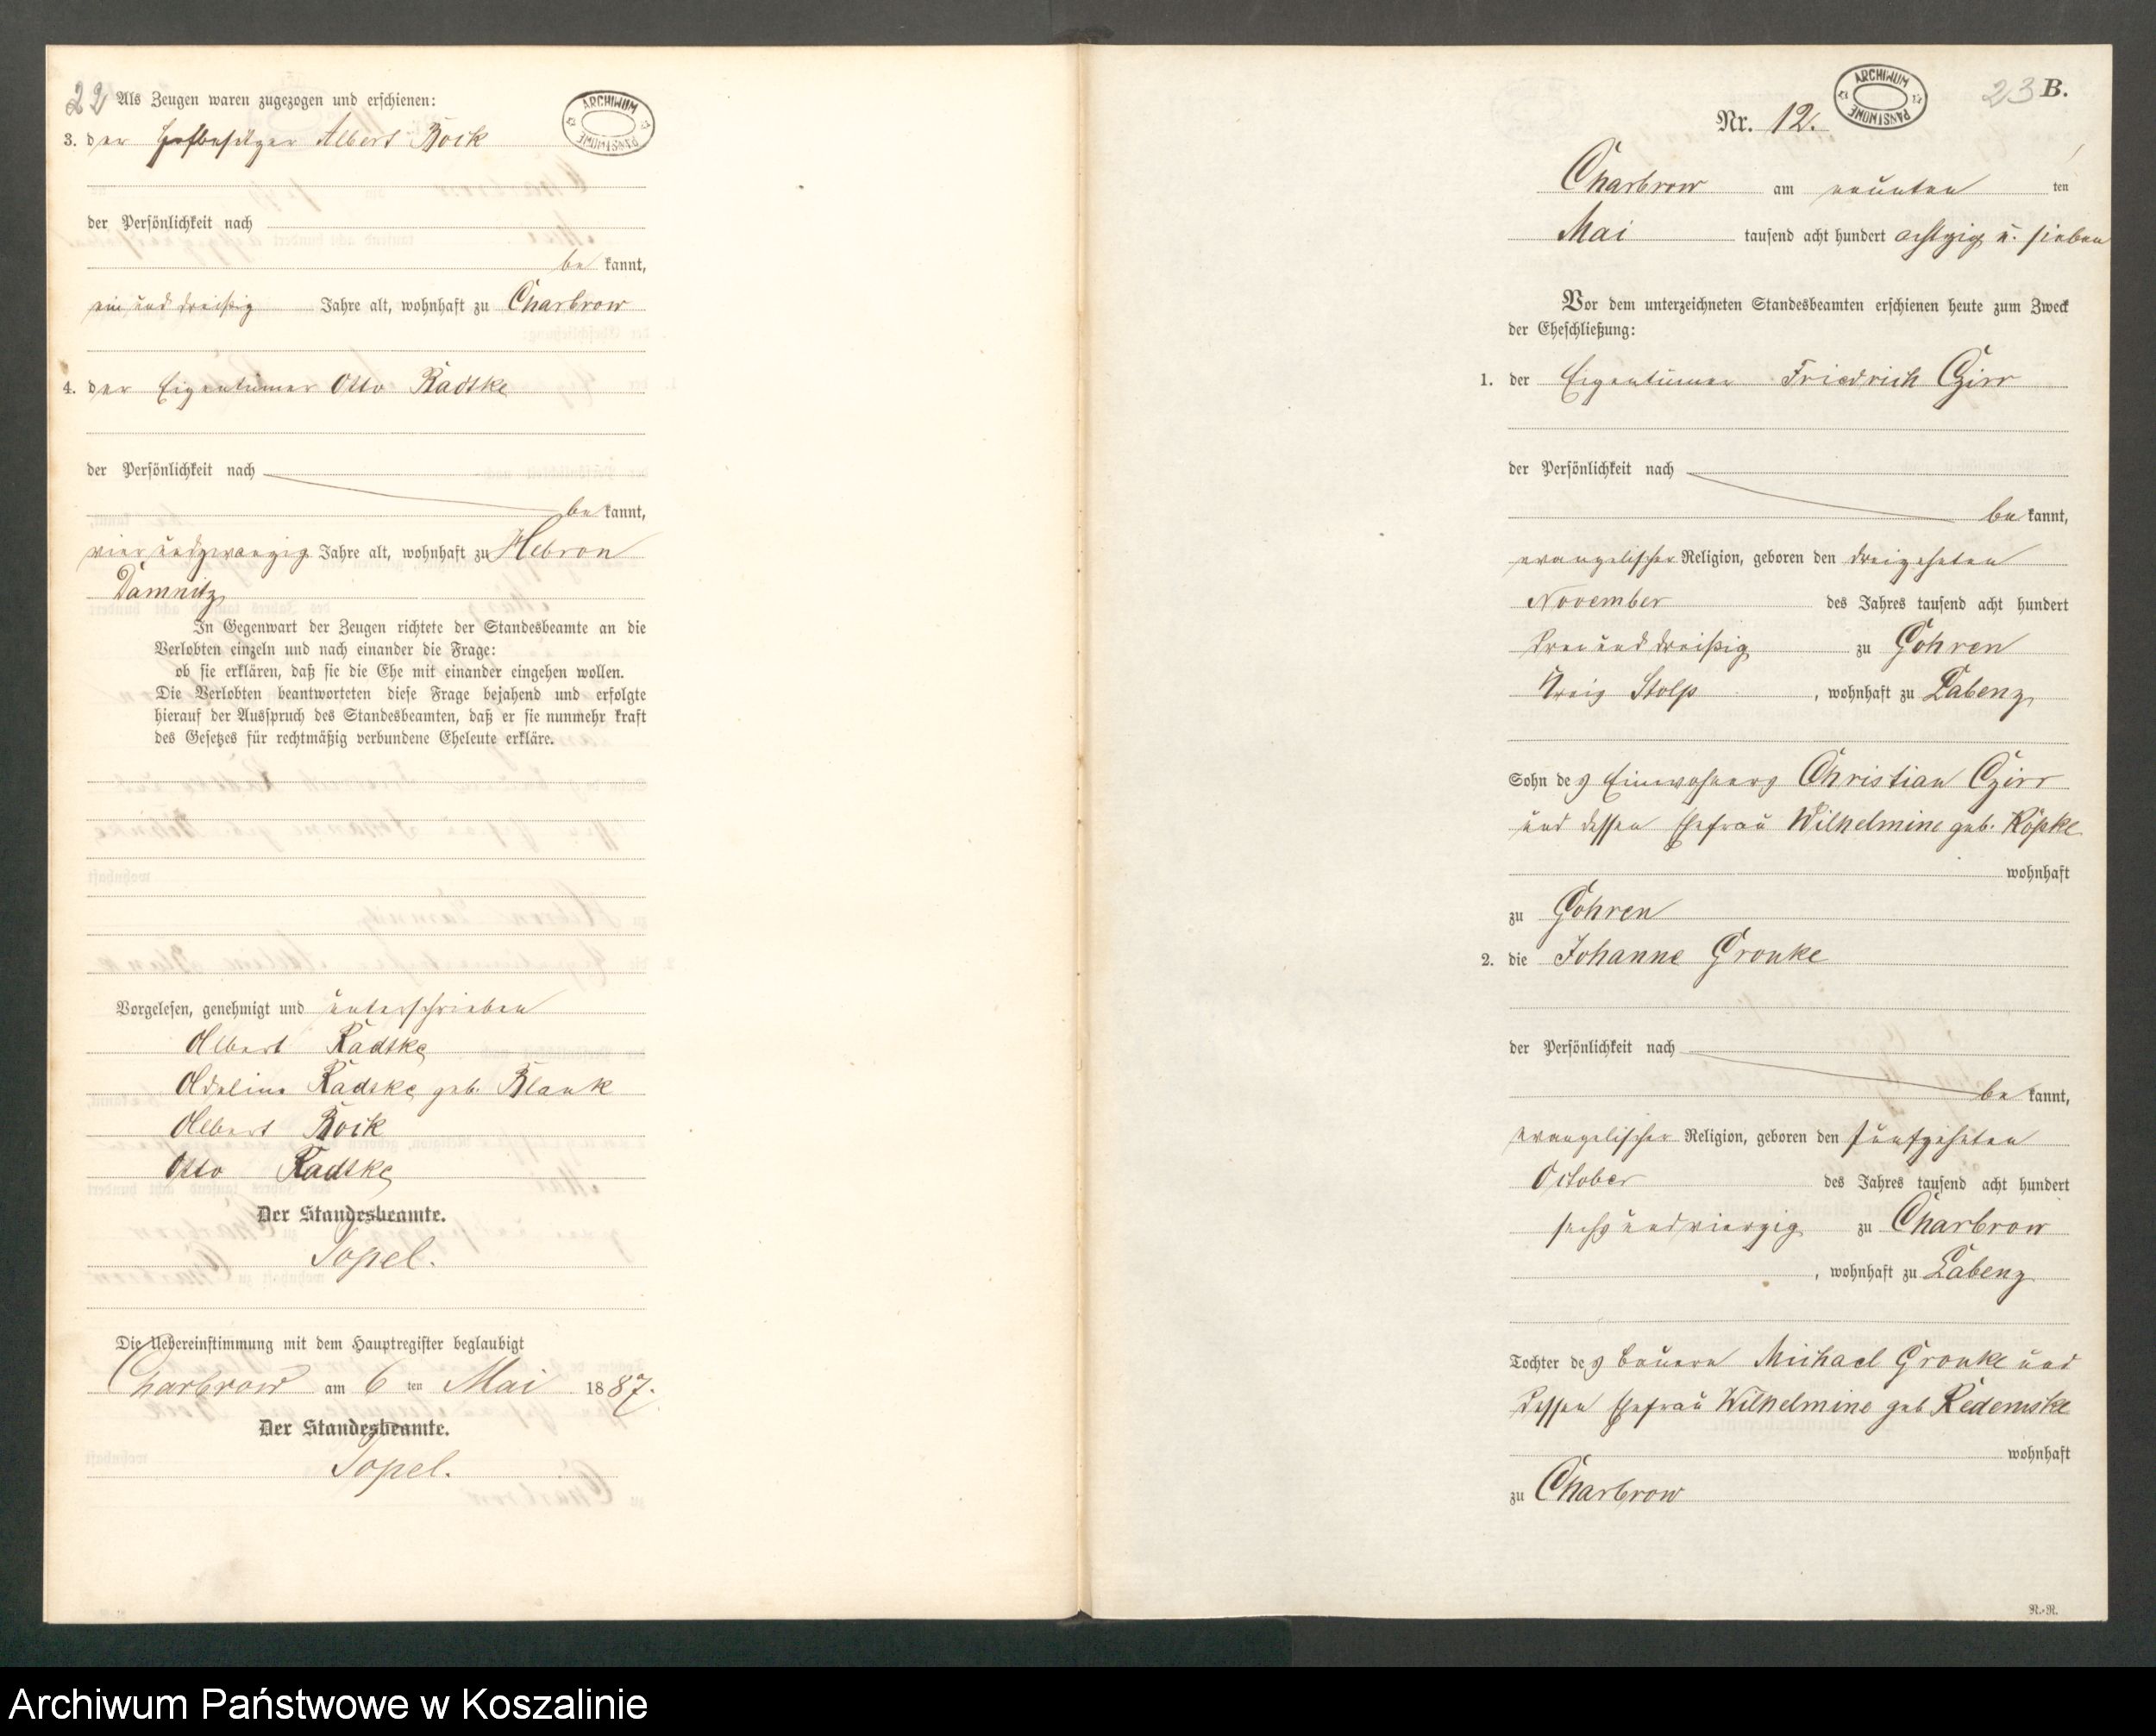 22
Als Zeugen waren zugezogen und erschienen:
ARCHIWUM PAŃSTWOWE
3. der Hofbesitzer Albert Bock
der Persönlichkeit nach
be kannt,
ein und dreißig Jahre alt, wohnhaft zu Charbrow
4. der Eigentümer Otto Radtke
der Persönlichkeit nach
be kannt,
vier und zwanzig Jahre alt, wohnhaft zu Hebron
Damnitz
In Gegenwart der Zeugen richtete der Standesbeamte an die
Verlobten einzeln und nach einander die Frage:
ob sie erklären, daß sie die Ehe mit einander eingehen wollen.
Die Verlobten beantworteten diese Frage bejahend und erfolgte
hierauf der Ausspruch des Standesbeamten, daß er sie nunmehr kraft
des Gesetzes für rechtmäßig verbundene Eheleute erkläre.
Vorgelesen, genehmigt und unterschrieben
Albert Radtke
Adeline Radtke geb. Blank
Albert Bock
Otto Radtke
Der Standesbeamte.
Topel.
Die Uebereinstimmung mit dem Hauptregister beglaubigt
Charbrow am 6 ten Mai 1887.
Der Standesbeamte.
Topel.
23 B.
ARCHIWUM PAŃSTWOWE
Nr. 12.
Charbrow am neunten ten
Mai tausend acht hundert achtzig u. sieben
Vor dem unterzeichneten Standesbeamten erschienen heute zum Zweck
der Eheschließung:
1. der Eigentümer Friedrich Czirr
der Persönlichkeit nach
be kannt,
evangelischer Religion, geboren den dreizehnten
November des Jahres tausend acht hundert
drei und dreißig zu Gohren
Kreis Stolp, wohnhaft zu Labenz
Sohn des Einwohners Christian Czirr
und dessen Ehefrau Wilhelmine geb. Köpke
wohnhaft
zu Gohren
2. die Johanne Gronke
der Persönlichkeit nach
be kannt,
evangelischer Religion, geboren den fünfzehnten
October des Jahres tausend acht hundert
sechs und vierzig zu Charbrow
, wohnhaft zu Labenz
Tochter des Bauern Michael Gronke und
dessen Ehefrau Wilhelmine geb
wohnhaft
zu Charbrow
R.-R.
Archiwum Państwowe w Koszalinie